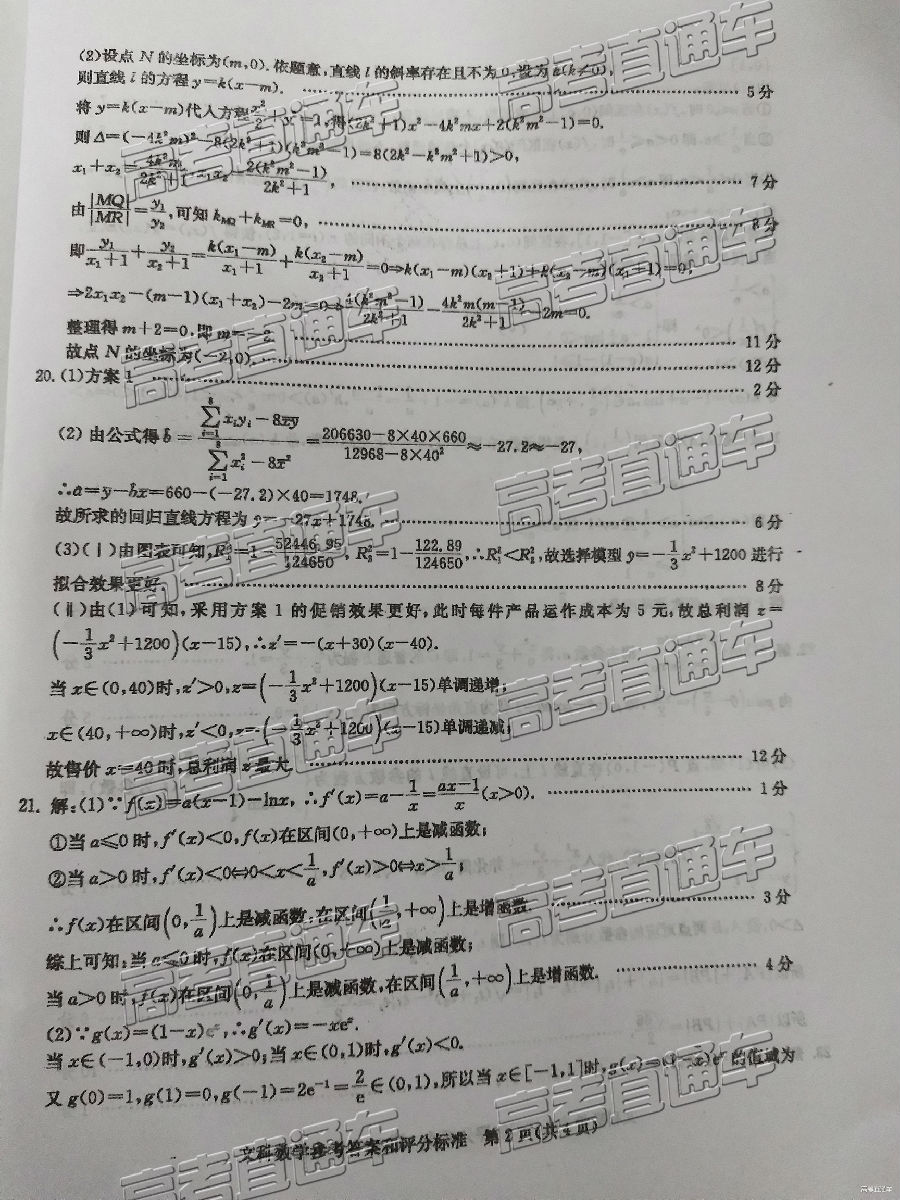 (2)设点 N 的坐标为(m,0).依题意,直线 l 的斜率存在且不为 0,设为 k(k≠0),
则直线 l 的方程 y=k(x−m). 5分
将 y=k(x−m)代入方程 x²/2+y²=1,得(2k²+1)x²−4k²mx+2(k²m²−1)=0.
则 Δ=(−4k²m)²−8(2k²+1)(k²m²−1)=8(2k²−k²m²+1)>0,
x₁+x₂=4k²m/(2k²+1), x₁x₂=2(k²m²−1)/(2k²+1), 7分
由|MQ|/|MR|=y₁/y₂,可知 k_MQ+k_MR=0, 8分
即 y₁/(x₁+1)+y₂/(x₂+1)=k(x₁−m)/(x₁+1)+k(x₂−m)/(x₂+1)=0⇒k(x₁−m)(x₂+1)+k(x₂−m)(x₁+1)=0,
⇒2x₁x₂−(m−1)(x₁+x₂)−2m=0⇒4(k²m²−1)/(2k²+1)−4k²m(m−1)/(2k²+1)−2m=0.
整理得 m+2=0,即 m=−2. 11分
故点 N 的坐标为(−2,0). 12分
20.(1)方案 1 2分
(2) 由公式得 b̂=(∑_{i=1}^{8} xᵢyᵢ−8x̄ȳ)/(∑_{i=1}^{8} xᵢ²−8x̄²)=(206630−8×40×660)/(12968−8×40²)≈−27.2≈−27,
∴â=ȳ−b̂x̄=660−(−27.2)×40=1748.
故所求的回归直线方程为 ŷ=−27x+1748. 6分
(3)(ⅰ)由图表可知,R₁²=1−52446.95/124650, R₂²=1−122.89/124650,∴R₁²<R₂²,故选择模型 ŷ=−1/3x²+1200 进行
拟合效果更好. 8分
(ⅱ)由(1)可知,采用方案 1 的促销效果更好,此时每件产品运作成本为 5 元,故总利润 z=
(−1/3x²+1200)(x−15),∴z′=−(x+30)(x−40).
当 x∈(0,40)时,z′>0,z=(−1/3x²+1200)(x−15)单调递增;
x∈(40,+∞)时,z′<0,z=(−1/3x²+1200)(x−15)单调递减;
故售价 x=40 时,总利润 z 最大. 12分
21. 解:(1)∵f(x)=a(x−1)−lnx, ∴f′(x)=a−1/x=(ax−1)/x(x>0). 1分
①当 a⩽0 时,f′(x)<0,f(x)在区间(0,+∞)上是减函数;
②当 a>0 时,f′(x)<0⇔0<x<1/a,f′(x)>0⇔x>1/a;
∴f(x)在区间(0,1/a)上是减函数,在区间(1/a,+∞)上是增函数. 3分
综上可知:当 a⩽0 时,f(x)在区间(0,+∞)上是减函数;
当 a>0 时,f(x)在区间(0,1/a)上是减函数,在区间(1/a,+∞)上是增函数. 4分
(2)∵g(x)=(1−x)eˣ,∴g′(x)=−xeˣ.
当 x∈(−1,0)时,g′(x)>0;当 x∈(0,1)时,g′(x)<0.
又 g(0)=1,g(1)=0,g(−1)=2e⁻¹=2/e∈(0,1),所以当 x∈[−1,1]时,g(x)=(1−x)eˣ 的值域为
文科数学参考答案和评分标准 第 2 页(共 4 页)
高考直通车
高考直通车
高考直通车
高考直通车
高考直通车
高考直通车
高考直通车
高考直通车
高考直通车
高考直通车
高考直通车
高考直通车
高考直通车